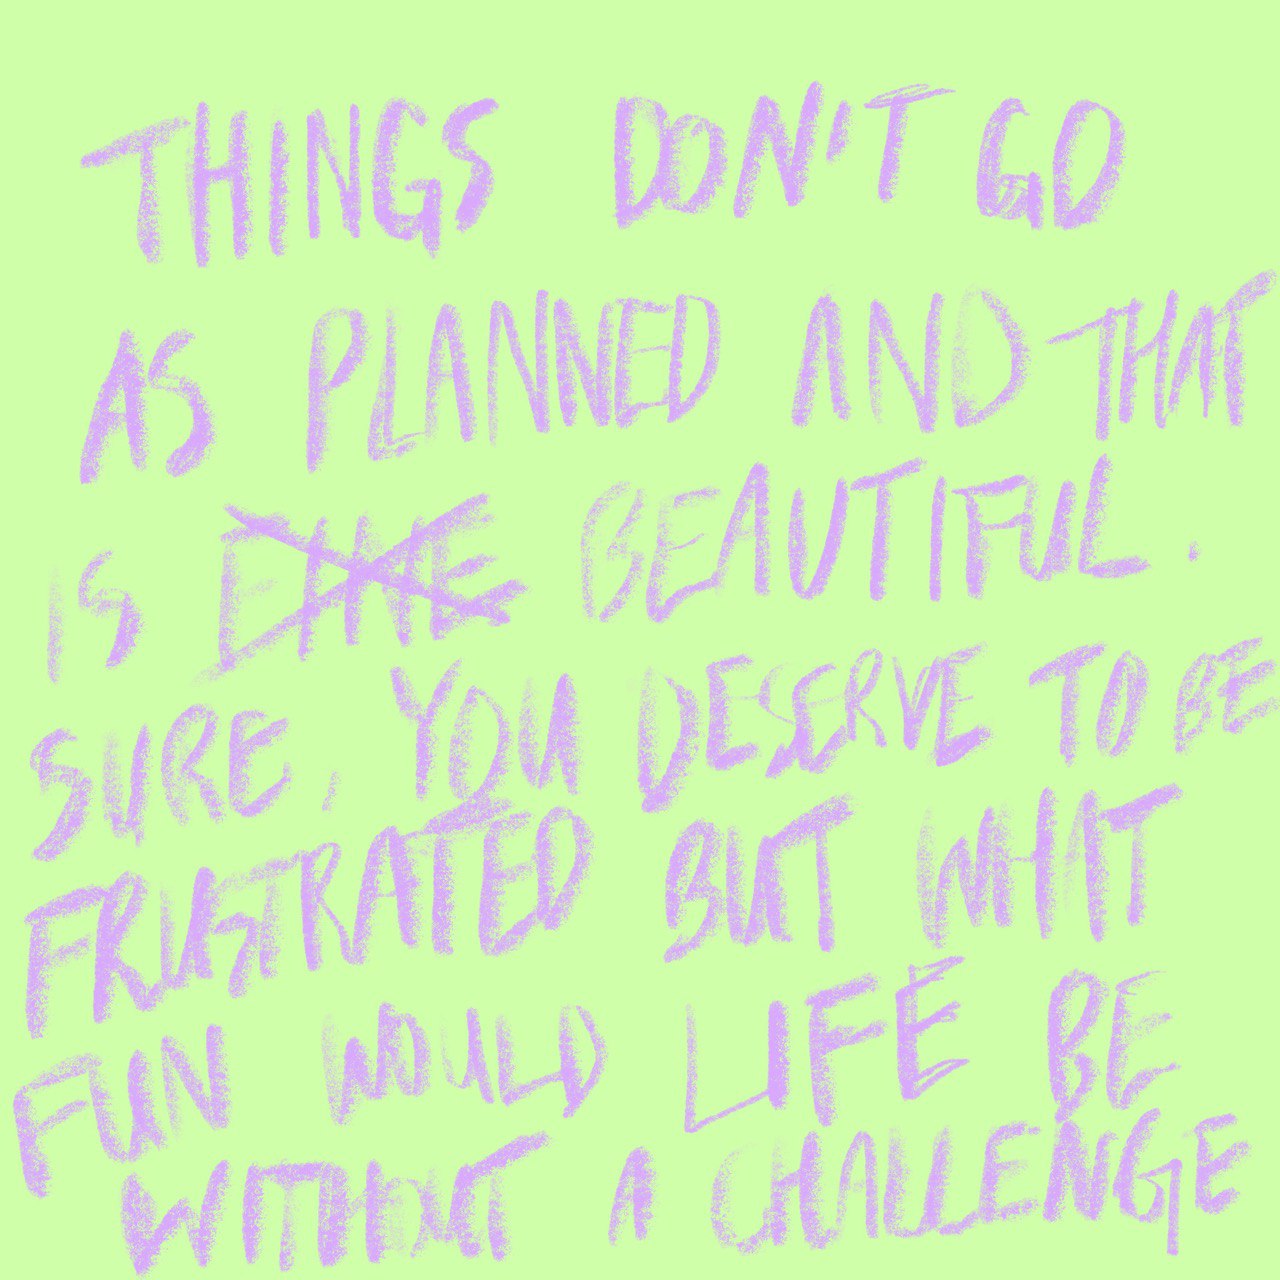 THINGS DON'T GO
AS PLANNED AND THAT
IS BEAUTIFUL.
SURE, YOU DESERVE TO BE
FRUSTRATED BUT WHAT
FUN WOULD LIFE BE
WITHOUT A CHALLENGE